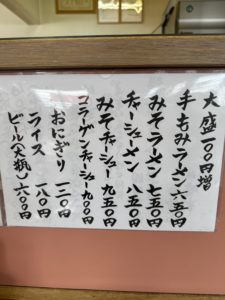 大盛一〇〇円増
手もみラーメン 六五〇円
みそラーメン 七五〇円
チャーシューメン 八五〇円
みそチャーシュー 九五〇円
コラーゲンチャーシュー 九〇〇円
おにぎり 一二〇円
ライス 一八〇円
ビール(大瓶) 六〇〇円